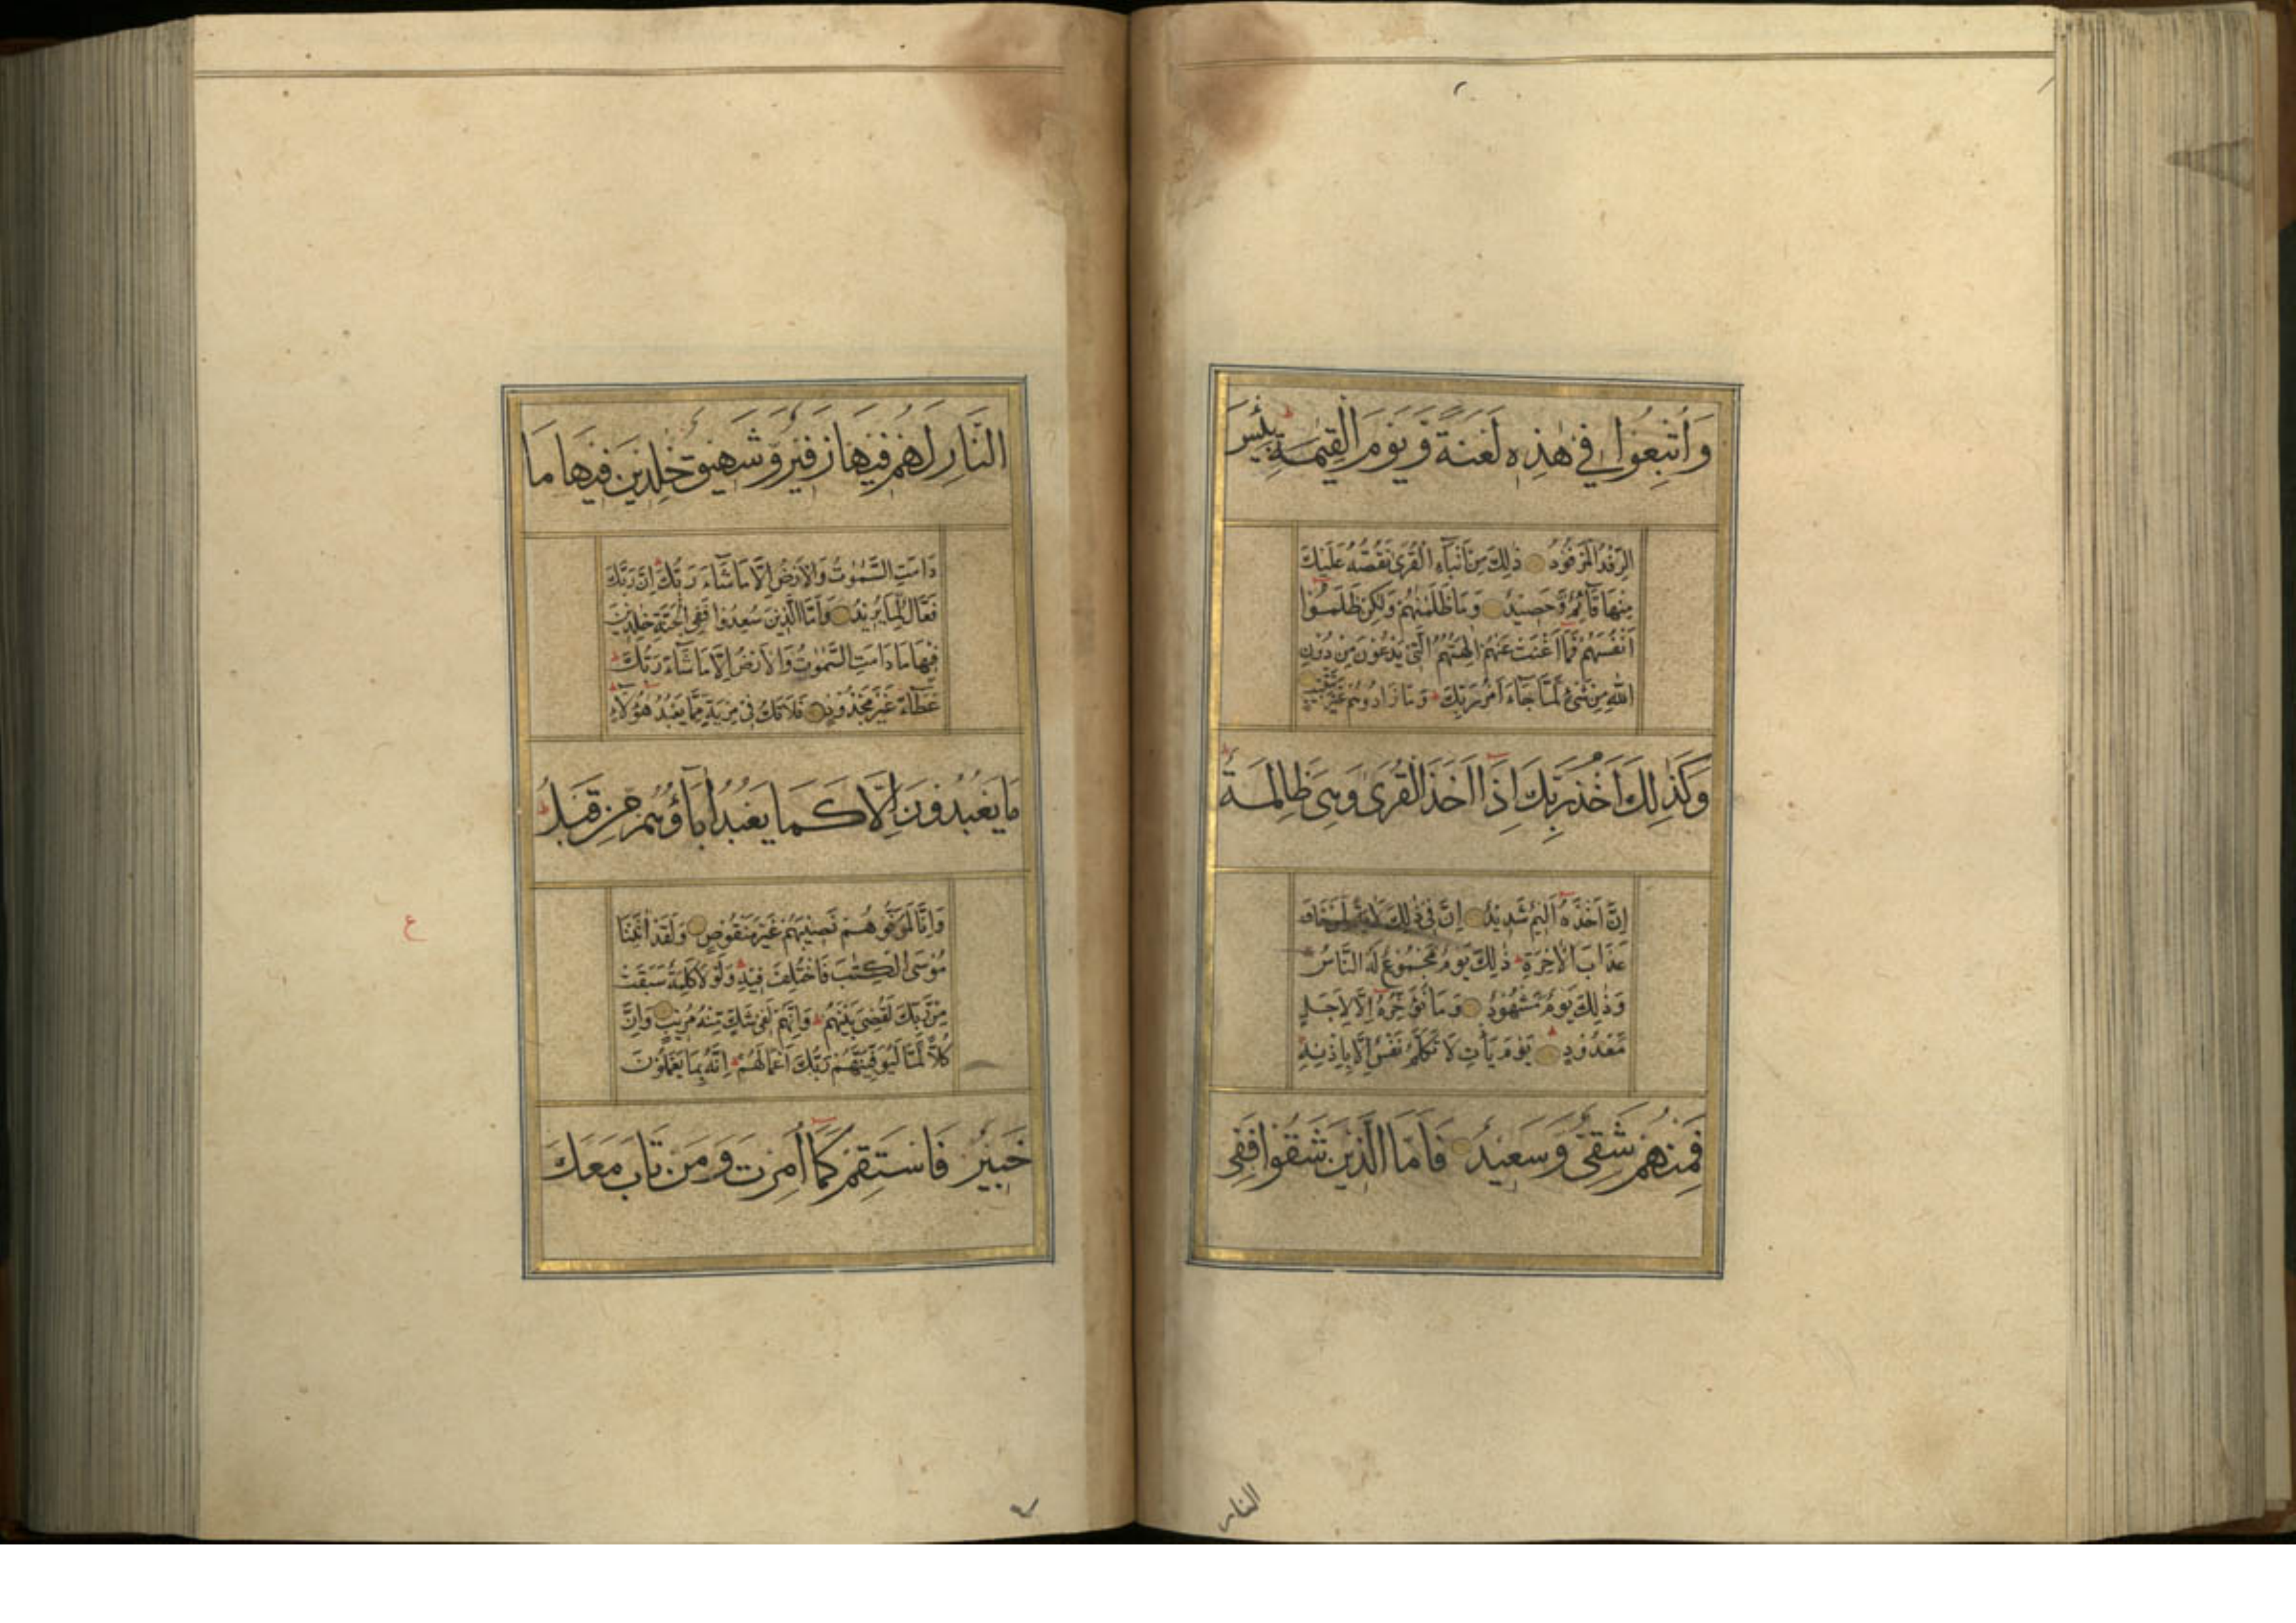 وَاُتْبِعُوا فِي هٰذِهِ لَعْنَةً وَيَوْمَ الْقِيٰمَةِ بِئْسَ
الرِّفْدُ الْمَرْفُودُ ذٰلِكَ مِنْ اَنْبَآءِ الْقُرٰى نَقُصُّهُ عَلَيْكَ
مِنْهَا قَآئِمٌ وَّحَصِيْدٌ وَمَا ظَلَمْنٰهُمْ وَلٰكِنْ ظَلَمُوْا
اَنْفُسَهُمْ فَمَا اَغْنَتْ عَنْهُمْ اٰلِهَتُهُمُ الَّتِيْ يَدْعُوْنَ مِنْ دُوْنِ
اللّٰهِ مِنْ شَيْءٍ لَمَّا جَآءَ اَمْرُ رَبِّكَ وَمَا زَادُوهُمْ غَيْرَ تَتْبِيْبٍ
وَكَذٰلِكَ اَخْذُ رَبِّكَ اِذَا اَخَذَ الْقُرٰى وَهِىَ ظَالِمَةٌ
اِنَّ اَخْذَهُ اَلِيْمٌ شَدِيْدٌ اِنَّ فِيْ ذٰلِكَ لَاٰيَةً لِّمَنْ خَافَ
عَذَابَ الْاٰخِرَةِ ذٰلِكَ يَوْمٌ مَجْمُوْعٌ لَهُ النَّاسُ
وَذٰلِكَ يَوْمٌ مَّشْهُوْدٌ وَمَا نُؤَخِّرُهُ اِلَّا لِاَجَلٍ
مَّعْدُوْدٍ يَوْمَ يَأْتِ لَا تَكَلَّمُ نَفْسٌ اِلَّا بِاِذْنِهِ
فَمِنْهُمْ شَقِىٌّ وَّسَعِيْدٌ فَاَمَّا الَّذِيْنَ شَقُوْا فَفِى
النار
النَّارِ لَهُمْ فِيْهَا زَفِيْرٌ وَّشَهِيْقٌ خٰلِدِيْنَ فِيْهَا مَا
دَامَتِ السَّمٰوٰتُ وَالْاَرْضُ اِلَّا مَا شَآءَ رَبُّكَ اِنَّ رَبَّكَ
فَعَّالٌ لِّمَا يُرِيْدُ وَاَمَّا الَّذِيْنَ سُعِدُوْا فَفِى الْجَنَّةِ خٰلِدِيْنَ
فِيْهَا مَا دَامَتِ السَّمٰوٰتُ وَالْاَرْضُ اِلَّا مَا شَآءَ رَبُّكَ
عَطَآءً غَيْرَ مَجْذُوْذٍ فَلَا تَكُ فِيْ مِرْيَةٍ مِّمَّا يَعْبُدُ هٰؤُلَآءِ
مَا يَعْبُدُوْنَ اِلَّا كَمَا يَعْبُدُ اٰبَآؤُهُمْ مِّنْ قَبْلُ
وَاِنَّا لَمُوَفُّوْهُمْ نَصِيْبَهُمْ غَيْرَ مَنْقُوْصٍ وَلَقَدْ اٰتَيْنَا
مُوْسَى الْكِتٰبَ فَاخْتُلِفَ فِيْهِ وَلَوْلَا كَلِمَةٌ سَبَقَتْ
مِنْ رَّبِّكَ لَقُضِيَ بَيْنَهُمْ وَاِنَّهُمْ لَفِيْ شَكٍّ مِّنْهُ مُرِيْبٍ وَاِنَّ
كُلًّا لَّمَّا لَيُوَفِّيَنَّهُمْ رَبُّكَ اَعْمَالَهُمْ اِنَّهُ بِمَا يَعْمَلُوْنَ
خَبِيْرٌ فَاسْتَقِمْ كَمَا اُمِرْتَ وَمَنْ تَابَ مَعَكَ
ع